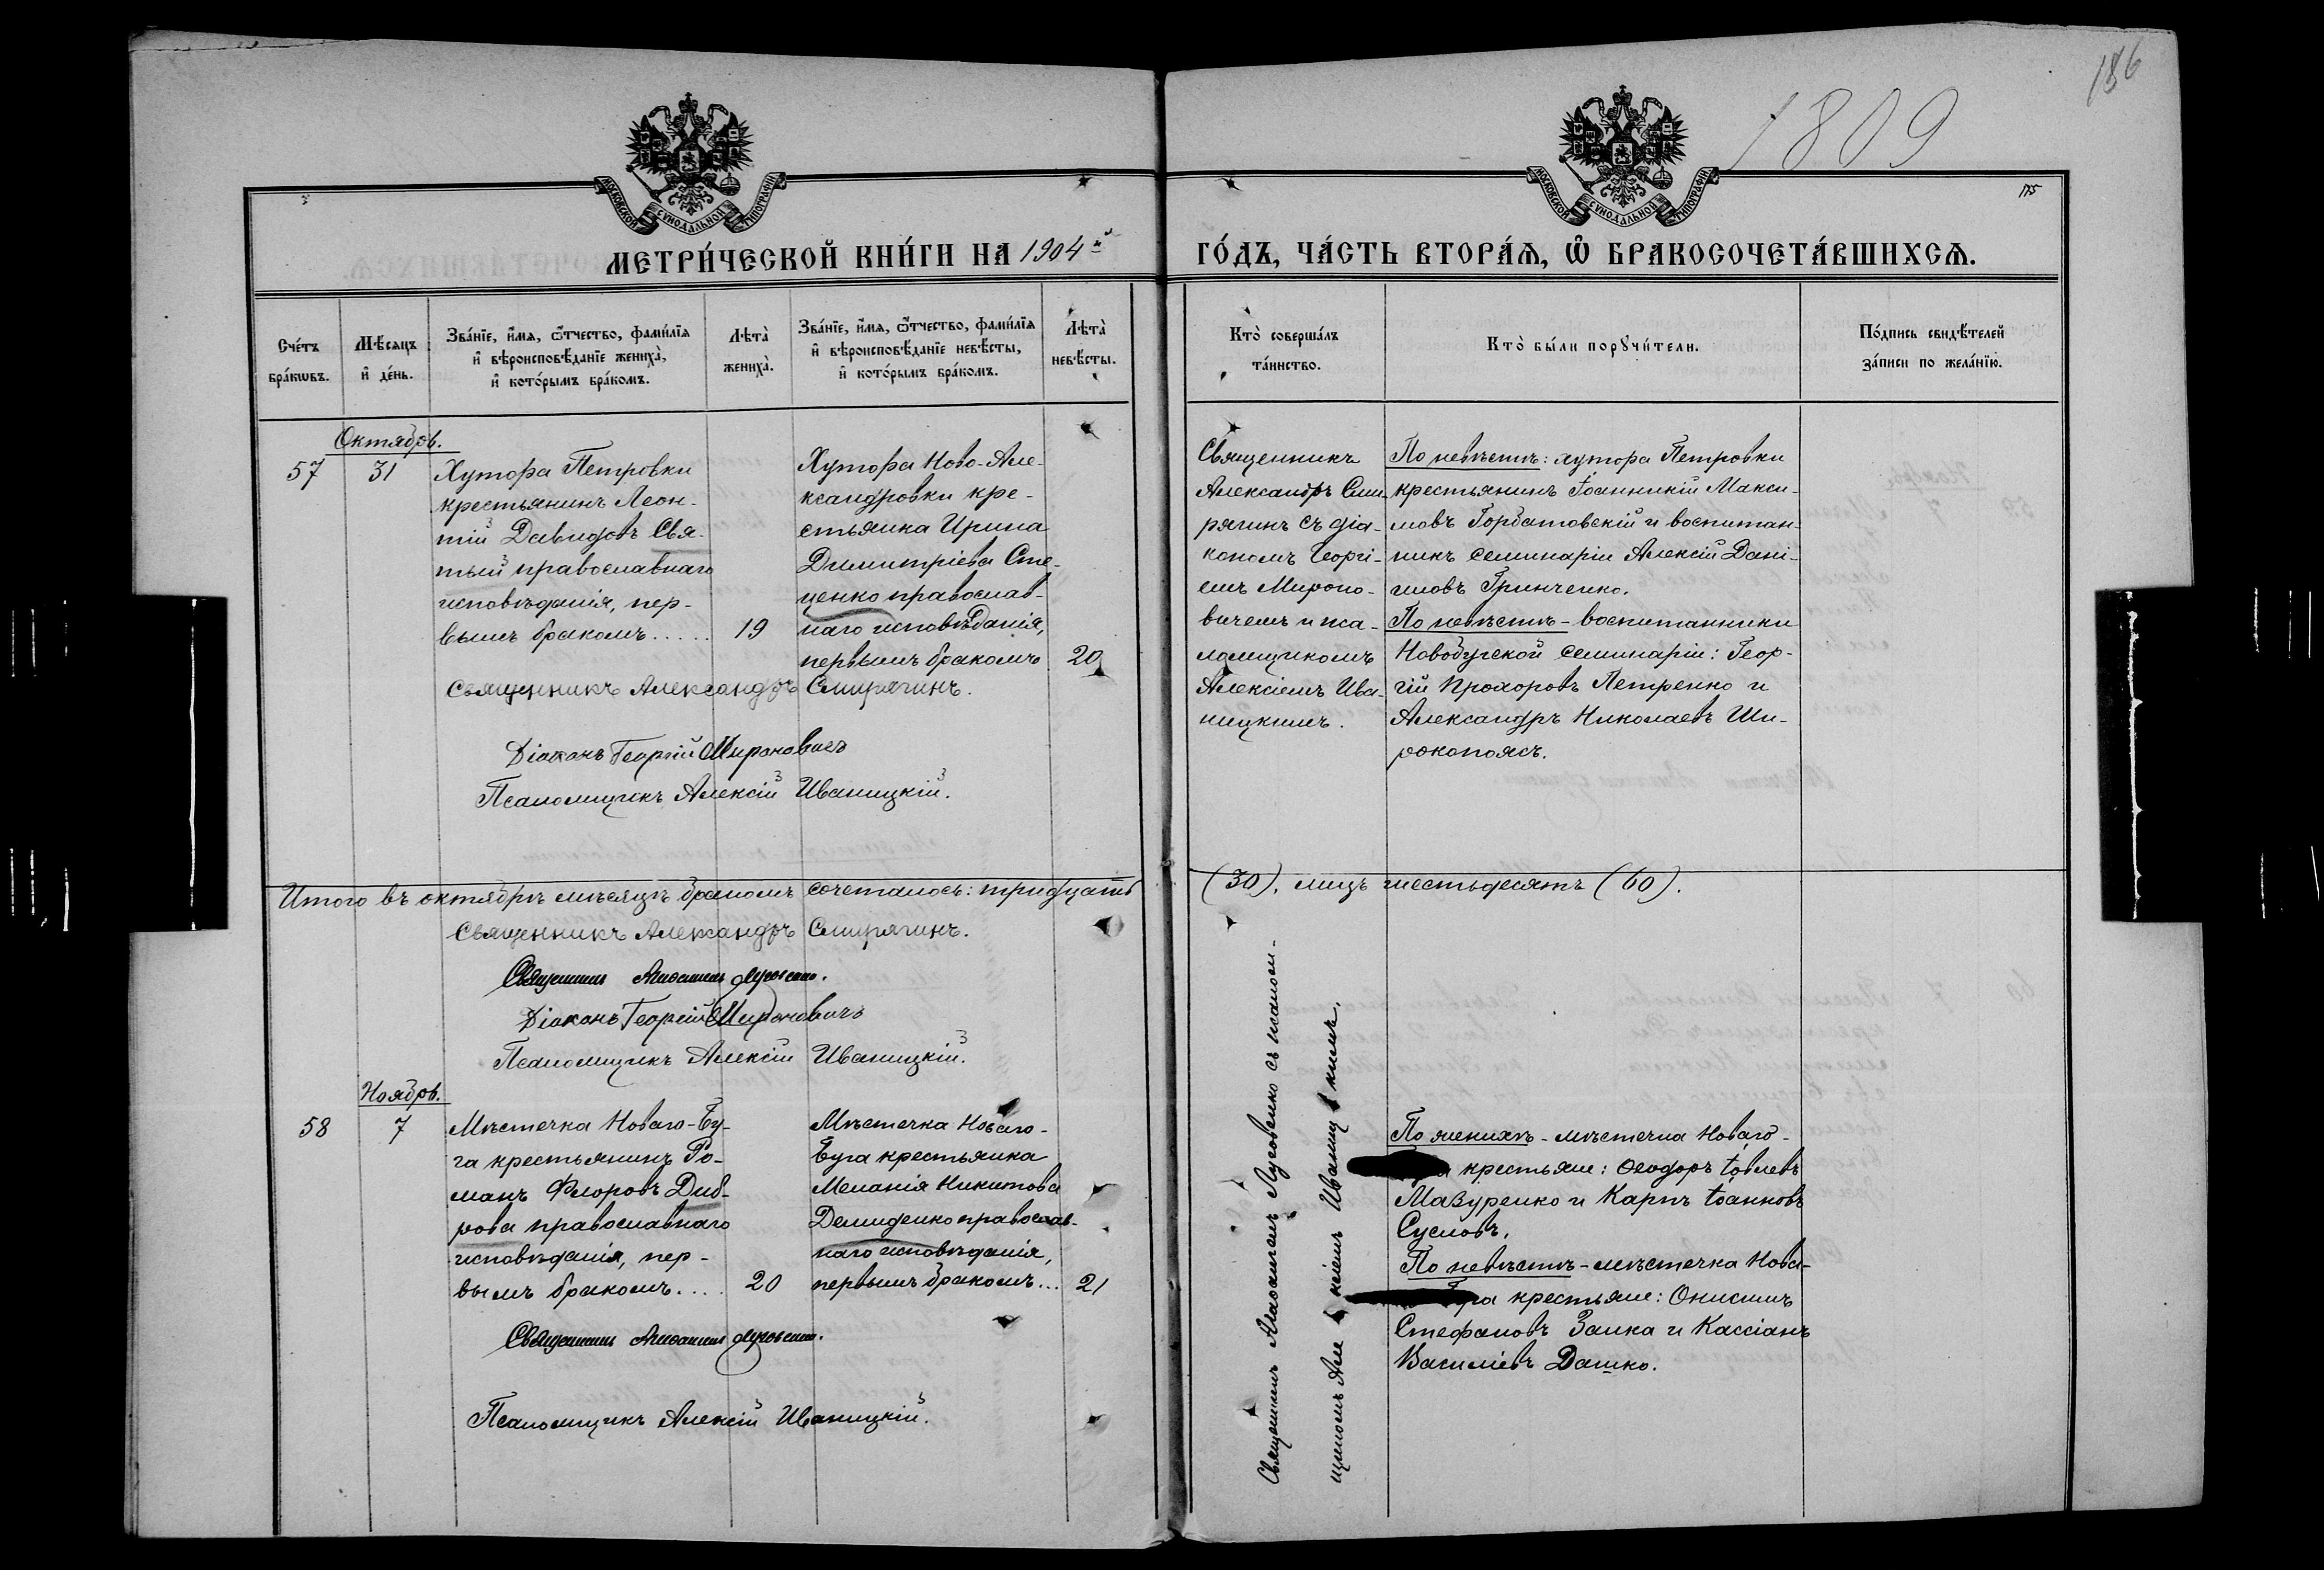 186
1809
175
МОСКОВСКОЙ СУНОДАЛЬНОЙ ТИПОГРАФІИ
МОСКОВСКОЙ СУНОДАЛЬНОЙ ТИПОГРАФІИ
МЕТРИ́ЧЕСКОЙ КНИ́ГИ НА 1904й
ГО́ДЪ, ЧА́СТЬ ВТОРА́Ѧ, Ѽ БРАКОСОЧЕТА́ВШИХСѦ.
Сче́тъ
бра́кѡвъ.
Мѣ́сѧцъ
и҆ де́нь.
Зва́нїе, и҆́мѧ, ѻ҆́тчество, фами́лїѧ
и҆ вѣроисповѣ́данїе жениха̀,
и҆ кото́рымъ бра́комъ.
Лѣта̀
жениха̀.
Зва́нїе, и҆́мѧ, ѻ҆́тчество, фами́лїѧ
и҆ вѣроисповѣ́данїе невѣ́сты,
и҆ кото́рымъ бра́комъ.
Лѣта̀
невѣ́сты.
Кто̀ соверша́лъ
та́инство.
Кто̀ бы́ли порꙋчи́тели.
По́дпись свидѣ́телей
за́писи по жела́нїю.
Октябрь.
57
31
Хутора Петровки
крестьянинъ Леон-
тій Давидовъ Свя-
тый православнаго
исповѣданія, пер-
вымъ бракомъ.....
19
Хутора Ново-Але-
ксандровки кре-
стьянка Ирина
Димитріева Сте-
ценко православ-
наго исповѣданія,
первымъ бракомъ
20
Священникъ
Александръ Сми-
рягинъ съ діа-
кономъ Георгі-
емъ Мироно-
вичемъ и пса-
ломщикомъ
Алексіемъ Ива-
ницкимъ.
По невѣстѣ: хутора Петровки
крестьянинъ Іоанникій Макси-
мовъ Горбатовскій и воспитан-
никъ семинаріи Алексій Дані-
иловъ Гринченко.
По невѣстѣ - воспитанники
Новобугской семинаріи: Геор-
гій Прохоровъ Петренко и
Александръ Николаевъ Ши-
рокопоясъ.
Священникъ Александръ Смирягинъ.
Діаконъ Георгій Мироновичъ
Псаломщикъ Алексій Иваницкій.
Итого въ октябрѣ мѣсяцѣ бракомъ сочеталось: тридцать
(30), лицъ шестьдесятъ (60).
Священникъ Александръ Смирягинъ.
Священникъ
Діаконъ Георгій Мироновичъ
Псаломщикъ Алексій Иваницкій.
Ноябрь.
58
7
Мѣстечка Новаго-Бу-
га крестьянинъ Ро-
манъ Флоровъ Диб-
рова православнаго
исповѣданія, пер-
вымъ бракомъ....
20
Мѣстечка Новаго-
Буга крестьянка
Меланія Никитова
Демиденко православ-
наго исповѣданія,
первымъ бракомъ...
21
Священникъ Луговенко съ псалом-
щикомъ Алексіемъ Иваницкимъ.
По женихѣ - мѣстечка Новаго-
крестьяне: Ѳеодоръ Іовлевъ
Мазуренко и Карпъ Іоанновъ
Сусловъ.
По невѣстѣ - мѣстечка Нова-
крестьяне: Онисимъ
Стефановъ Заика и Кассіанъ
Василіевъ Дашко.
Священникъ
Псаломщикъ Алексій Иваницкій.